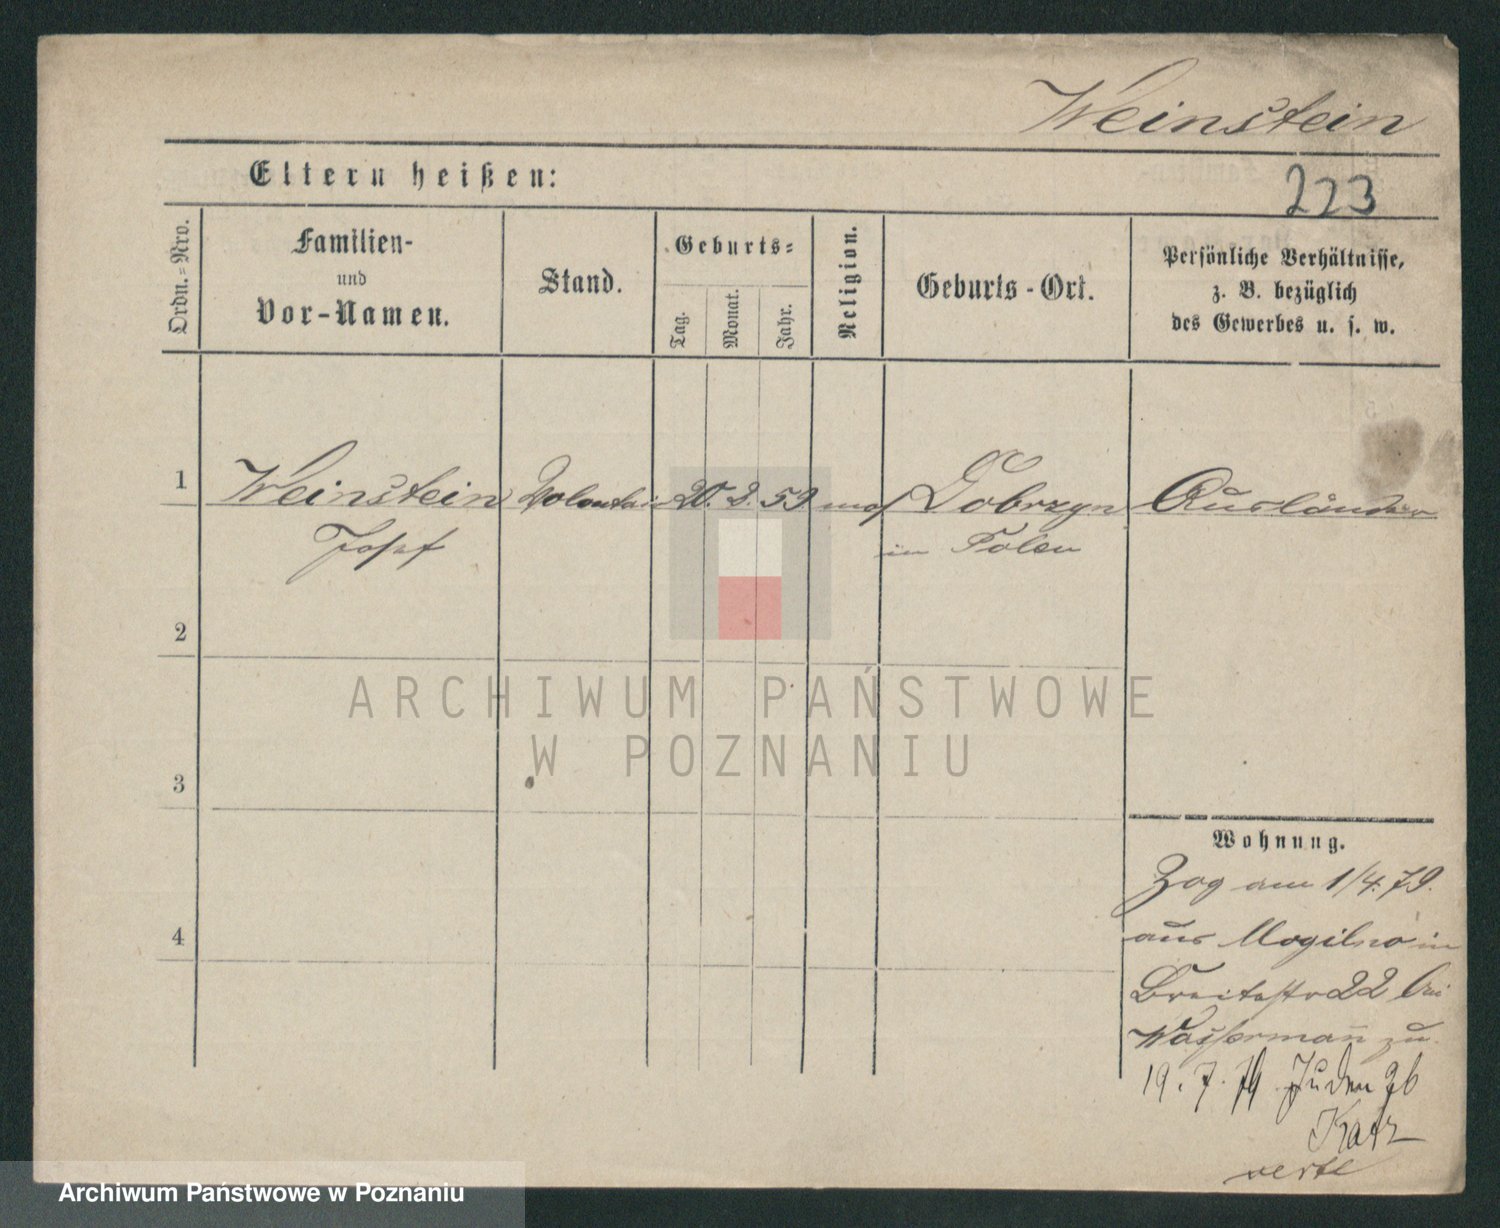 Weinstein
Eltern heißen:
223
Ordn.=Nro.
Familien-
und
Vor-Namen.
Stand.
Geburts=
Tag.
Monat.
Jahr.
Religion.
Geburts-Ort.
Persönliche Verhältnisse,
z. B. bezüglich
des Gewerbes u. s. w.
1 Weinstein Volontair 20. 2. 59 mos Dobrzyn Ausländer
Josef in Polen
2
3
4
ARCHIWUM PAŃSTWOWE
W POZNANIU
Wohnung.
Zog am 1/4.79.
aus Mogilno in
Breitestr 22 bei
Wassermann zu
19.7.79 Juden 26
Katz
Archiwum Państwowe w Poznaniu